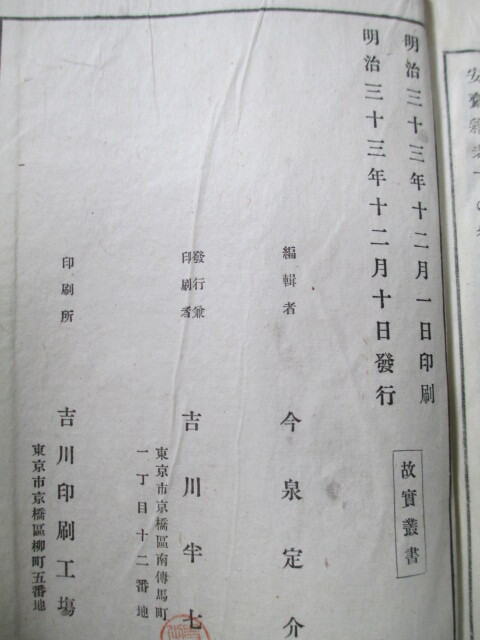 明治三十三年十二月一日印刷
明治三十三年十二月十日發行
故實叢書
編輯者
今泉定介
發行兼
印刷者
吉川半七
東京市京橋區南傳馬町
一丁目十二番地
印刷所
吉川印刷工塲
東京市京橋區柳町五番地